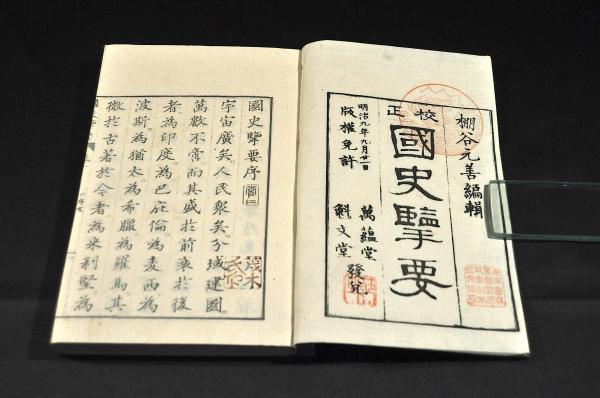 棚谷元善編輯
校正
國史擥要
明治九年九月廿一日
版權免許
萬蘊堂
魁文堂
發兌
國史擥要序
宇宙廣矣。人民衆矣。分域建國。
萬數不啻。而其盛於前衰於後
者。為印度。為巴庇倫。為麥西。為
波斯。為猶太。為希臘。為羅馬。其
徵於古著於今者。為米利堅。為